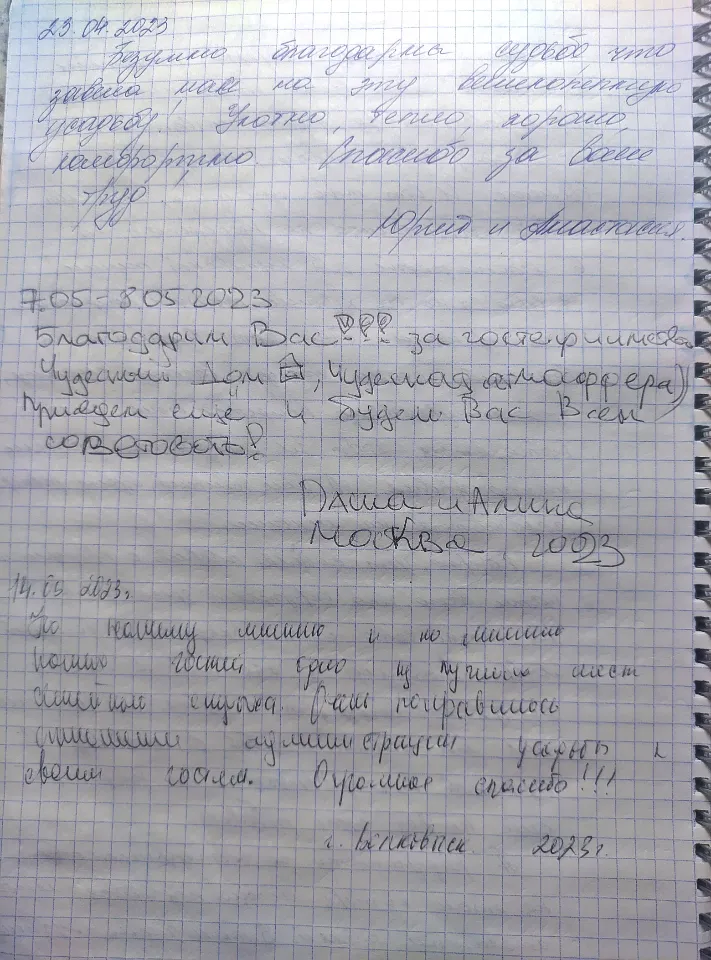 23.04.2023
Безумно благодарны судьбе, что
завела нас на эту великолепную
усадьбу! Уютно, тепло, хорошо,
комфортно. Спасибо за ваш
труд!
Юрий и Анастасия.
7.05-8.05.2023
Благодарим Вас!!! за гостеприимство
Чудесный Дом, Чудесная атмосфера))
Приедем ещё и будем Вас Всем
советовать!
Даша и Алина
Москва, 2023
14.05.2023г.
По нашему мнению и по мнению
наших гостей одно из лучших мест
семейного отдыха. Очень понравилось
отношение администрации усадьбы к
своим гостям. Огромное спасибо!!!
г. Волковыск 2023г.